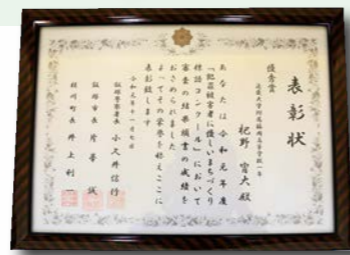 表彰状
優秀賞
近畿大学附属福岡高等学校一年
杷野 宙大 殿
あなたは令和元年度
「犯罪被害者に優しいまちづくり
標語コンクール」において
審査の結果頭書の成績を
おさめられました
よってその栄誉を称えここに
表彰致します
令和元年十一月七日
飯塚警察署長 小久井信行
飯塚市長 片峯 誠
桂川町長 井上利一